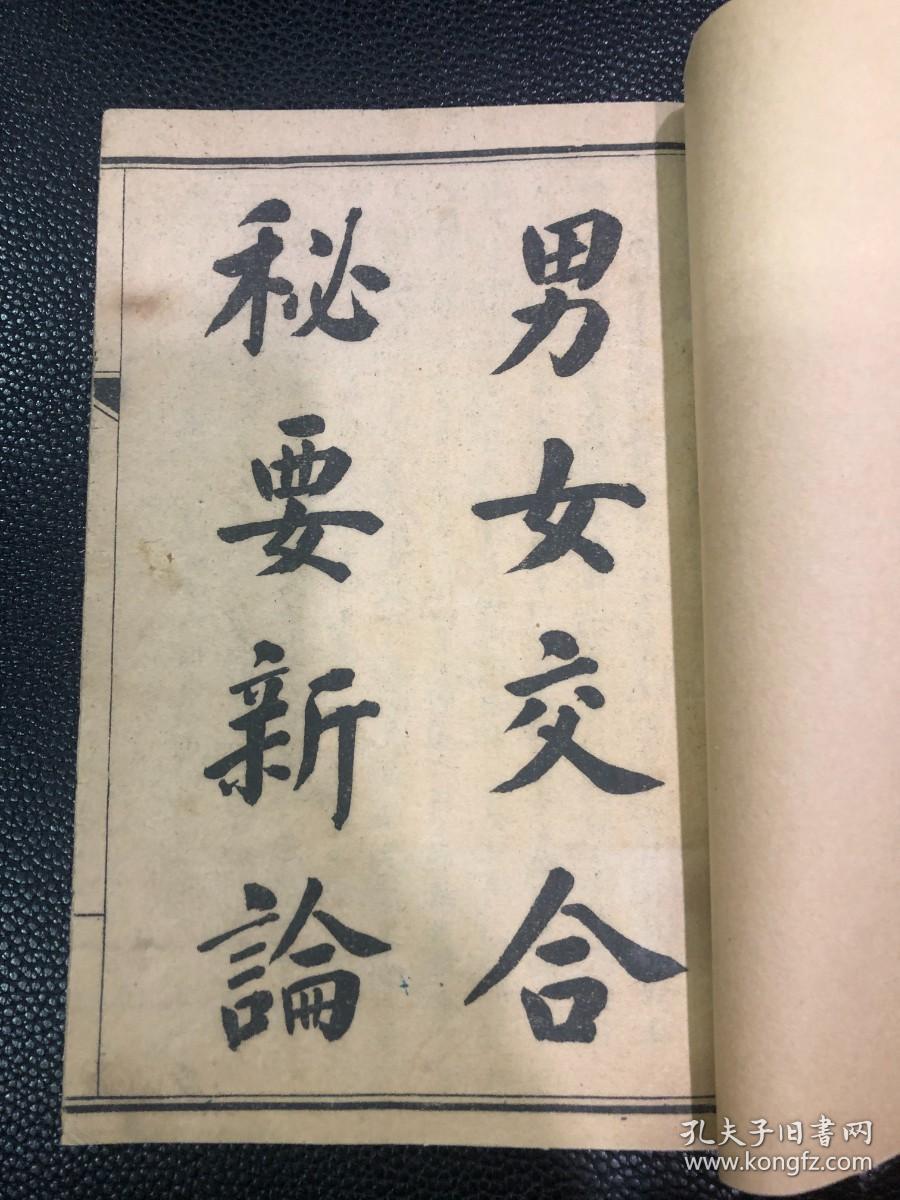 男女交合
秘要新論
孔夫子旧書网
www.kongfz.com